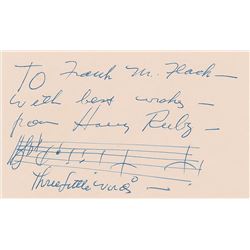 To Frank M. Flack —
with best wishes —
from Harry Ruby —
"Three Little Words" —